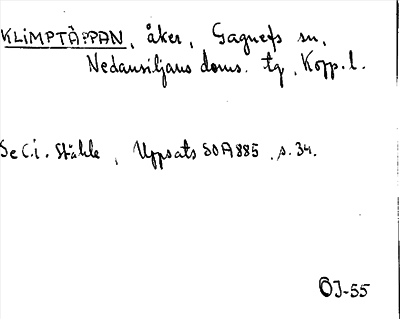 KLIMPTÄPPAN, åker, Gagnefs sn,
Nedansiljans doms. tg, Kopp. l.
Se C.i. Ståhle, Uppsats SOA 885, s. 34.
ÖJ-55